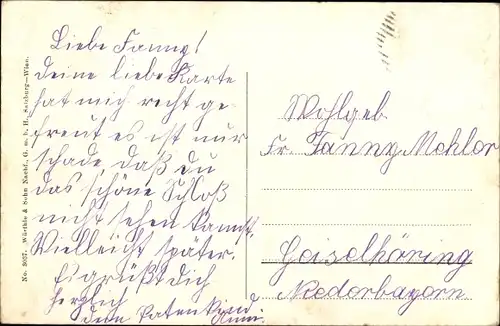 Liebe Fanny!
Deine liebe Karte
hat mich recht ge-
freut es ist nur
schade daß du
das schöne Schloß
nicht sehen kannst.
Vielleicht später.
Es grüßt Dich
herzlich
dein Patenkind
Wohlgeb.
Fr. Fanny Mohlor
Geiselhöring
Niederbayern
No. 3057. Würthle & Sohn Nachf., G. m. b. H., Salzburg—Wien.